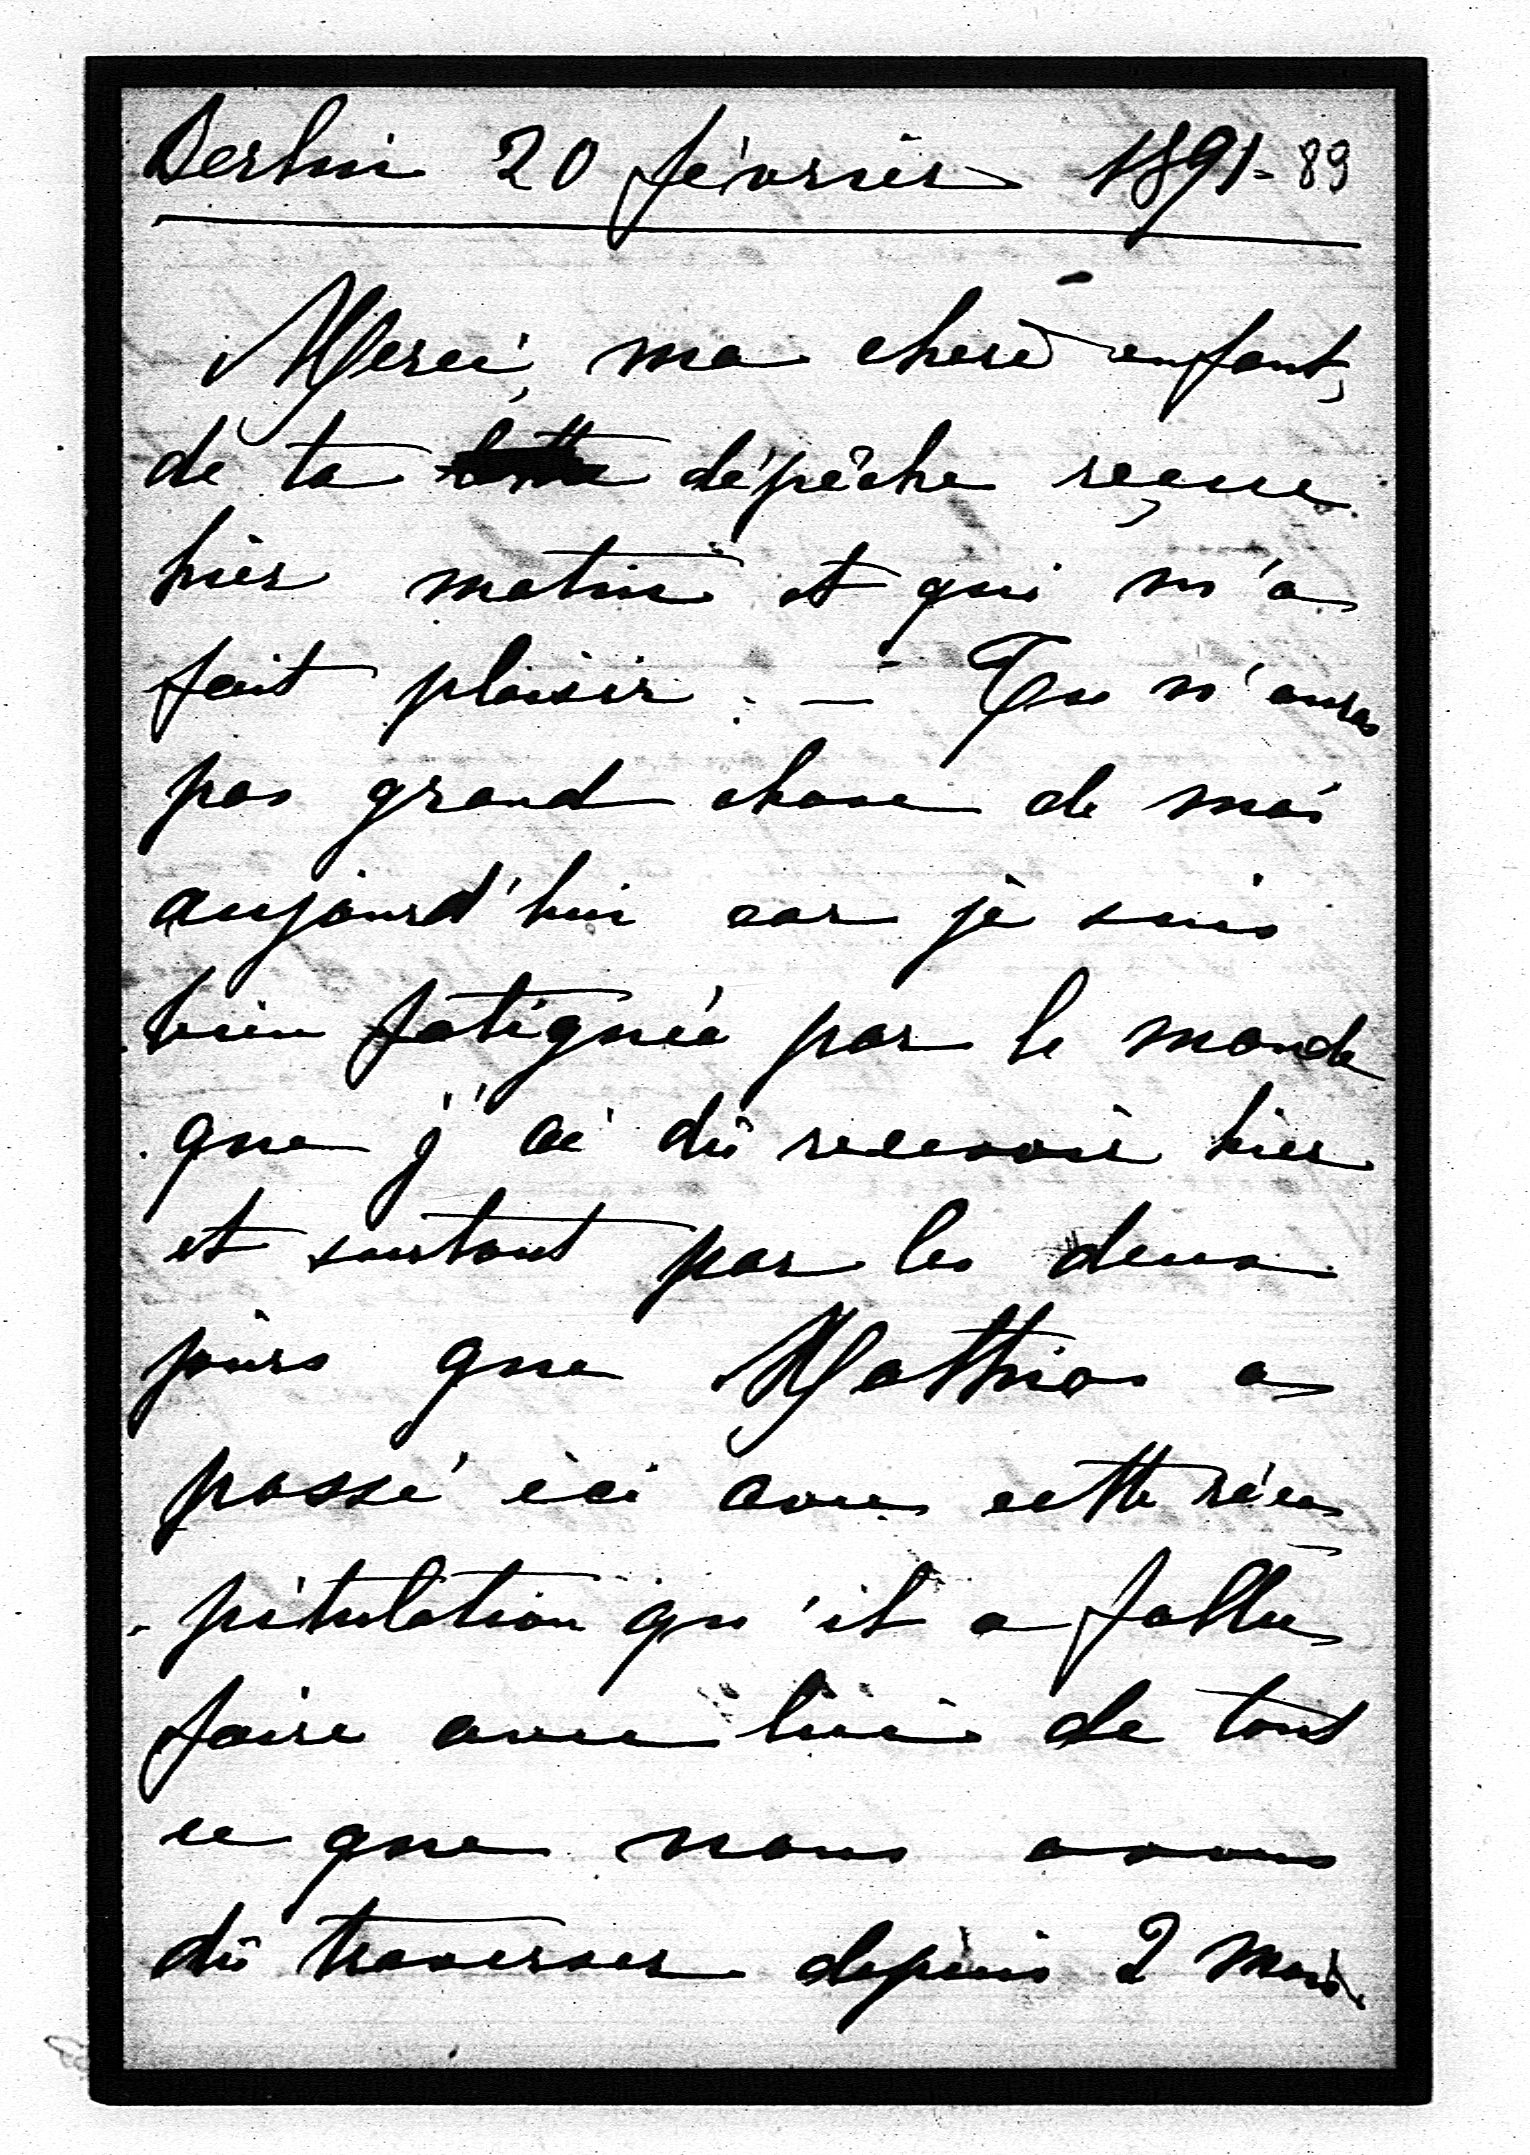 Berlin 20 février 1891- 89
Merci, ma chère enfant,
de ta dépêche reçue
hier matin et qui m'a
fait plaisir. — Tu n'auras
pas grand chose de moi
aujourd'hui car je suis
bien fatiguée par le monde
que j'ai dû recevoir hier
et surtout par les deux
jours que Mathias a
passé ici avec cette réca
pitulation qu'il a fallu
faire avec lui de tout
ce que nous avons
dû traverser depuis 2 mois.